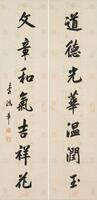 道德光華溫潤玉
文章和氣吉祥花
李鴻章